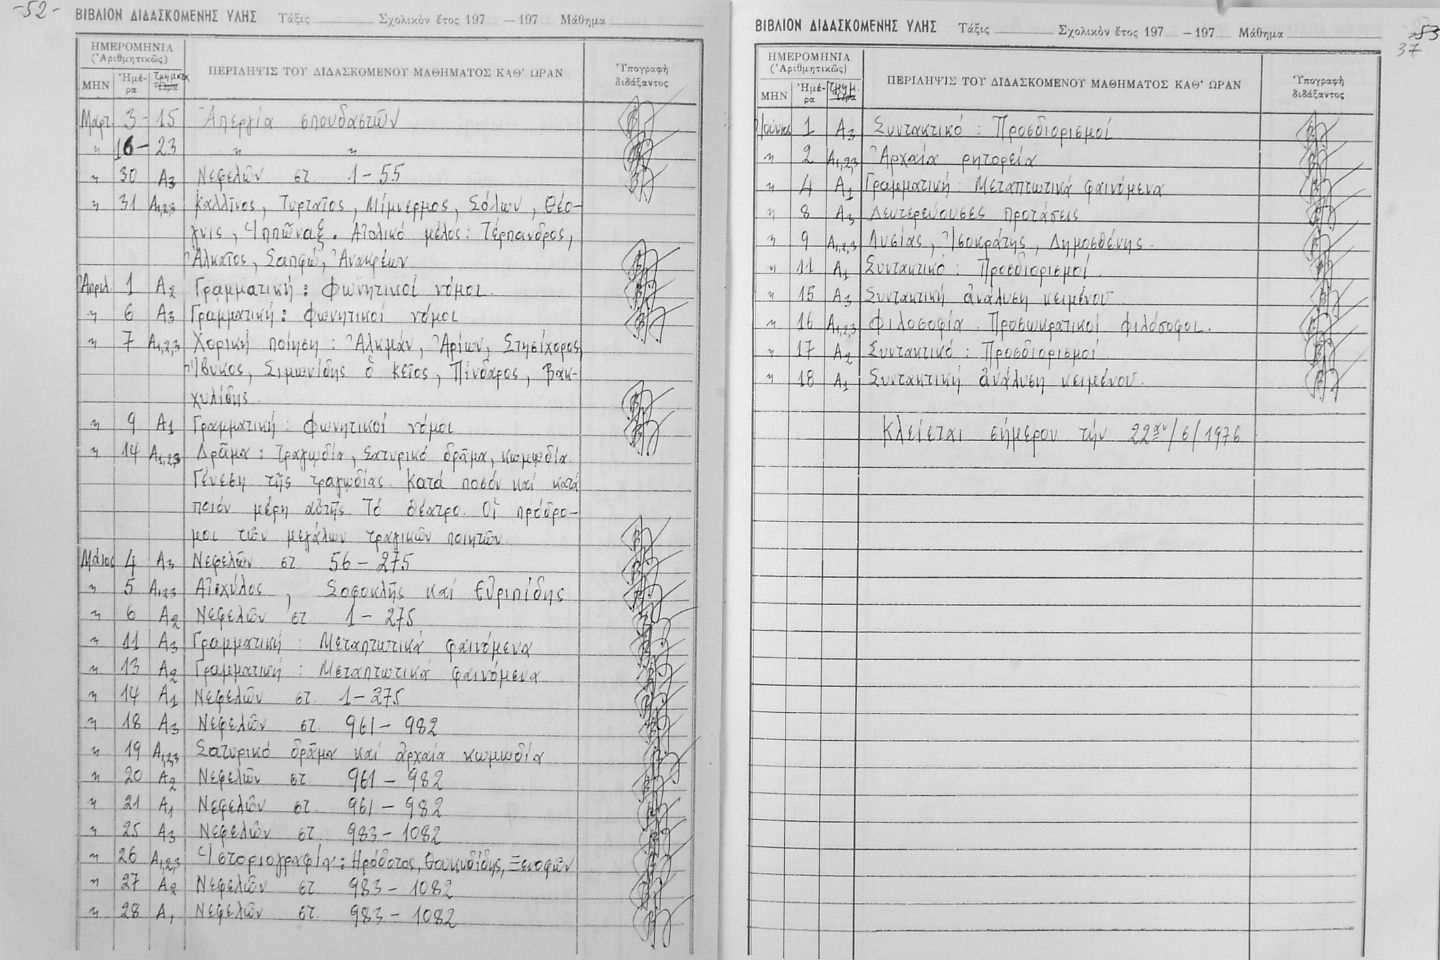 -52-
ΒΙΒΛΙΟΝ ΔΙΔΑΣΚΟΜΕΝΗΣ ΥΛΗΣ Τάξις Σχολικὸν ἔτος 197 -197 Μάθημα
ΗΜΕΡΟΜΗΝΙΑ
(Ἀριθμητικῶς)
ΜΗΝ Ἡμέρα Τμῆμα Ὥρα ΠΕΡΙΛΗΨΙΣ ΤΟΥ ΔΙΔΑΣΚΟΜΕΝΟΥ ΜΑΘΗΜΑΤΟΣ ΚΑΘ' ΩΡΑΝ Ὑπογραφὴ διδάξαντος
Μάρτ. 3 - 15 Ἀπεργία σπουδαστῶν
" 16 - 23 " "
" 30 Α3 Νεφελῶν στ. 1-55
" 31 Α1,2,3 Καλλῖνος, Τυρταῖος, Μίμνερμος, Σόλων, Θέο-
γνις, Ἱππῶναξ. Αἰολικό μέλος: Τέρπανδρος,
Ἀλκαῖος, Σαπφώ, Ἀνακρέων
Ἀπριλ. 1 Α2 Γραμματική: Φωνητικοί νόμοι.
" 6 Α3 Γραμματική: Φωνητικοί νόμοι
" 7 Α1,2,3 Χορική ποίηση: Ἀλκμάν, Ἀρίων, Στησίχορος,
Ἴβυκος, Σιμωνίδης ὁ Κεῖος, Πίνδαρος, Βακ-
χυλίδης.
" 9 Α1 Γραμματική: Φωνητικοί νόμοι
" 14 Α1,2,3 Δρᾶμα: Τραγωδία, Σατυρικό δρᾶμα, κωμωδία.
Γένεση τῆς τραγωδίας. Κατά ποσόν καί κατά
ποιόν μέρη αὐτῆς. Τό θέατρο. Οἱ πρόδρο-
μοι τῶν μεγάλων τραγικῶν ποιητῶν.
Μάιος 4 Α3 Νεφελῶν στ. 56-275
" 5 Α1,2,3 Αἰσχύλος, Σοφοκλῆς καί Εὐριπίδης
" 6 Α2 Νεφελῶν στ. 1-275
" 11 Α3 Γραμματική: Μεταπτωτικά φαινόμενα
" 13 Α2 Γραμματική: Μεταπτωτικά φαινόμενα
" 14 Α1 Νεφελῶν στ. 1-275
" 18 Α3 Νεφελῶν στ. 961-982
" 19 Α1,2,3 Σατυρικό δρᾶμα καί ἀρχαία κωμωδία
" 20 Α2 Νεφελῶν στ. 961-982
" 21 Α1 Νεφελῶν στ. 961-982
" 25 Α3 Νεφελῶν στ. 983-1082
" 26 Α1,2,3 Ἱστοριογραφία: Ἡρόδοτος, Θουκυδίδης, Ξενοφῶν
" 27 Α2 Νεφελῶν στ. 983-1082
" 28 Α1 Νεφελῶν στ. 983-1082
53
37
ΒΙΒΛΙΟΝ ΔΙΔΑΣΚΟΜΕΝΗΣ ΥΛΗΣ Τάξις Σχολικὸν ἔτος 197 -197 Μάθημα
ΗΜΕΡΟΜΗΝΙΑ
(Ἀριθμητικῶς)
ΜΗΝ Ἡμέρα Τμημ. Ὥρα ΠΕΡΙΛΗΨΙΣ ΤΟΥ ΔΙΔΑΣΚΟΜΕΝΟΥ ΜΑΘΗΜΑΤΟΣ ΚΑΘ' ΩΡΑΝ Ὑπογραφὴ διδάξαντος
Ἰούνιος 1 Α3 Συντακτικό: Προσδιορισμοί
" 2 Α1,2,3 Ἀρχαία ρητορεία
" 4 Α1 Γραμματική: Μεταπτωτικά φαινόμενα
" 8 Α3 Δευτερεύουσες προτάσεις
" 9 Α1,2,3 Λυσίας, Ἰσοκράτης, Δημοσθένης.
" 11 Α1 Συντακτικό: Προσδιορισμοί.
" 15 Α3 Συντακτική ἀνάλυση κειμένου
" 16 Α1,2,3 Φιλοσοφία. Προσωκρατικοί φιλόσοφοι.
" 17 Α2 Συντακτικό: Προσδιορισμοί
" 18 Α1 Συντακτική ἀνάλυση κειμένου.
Κλείεται σήμερον τήν 22αν/6/1976